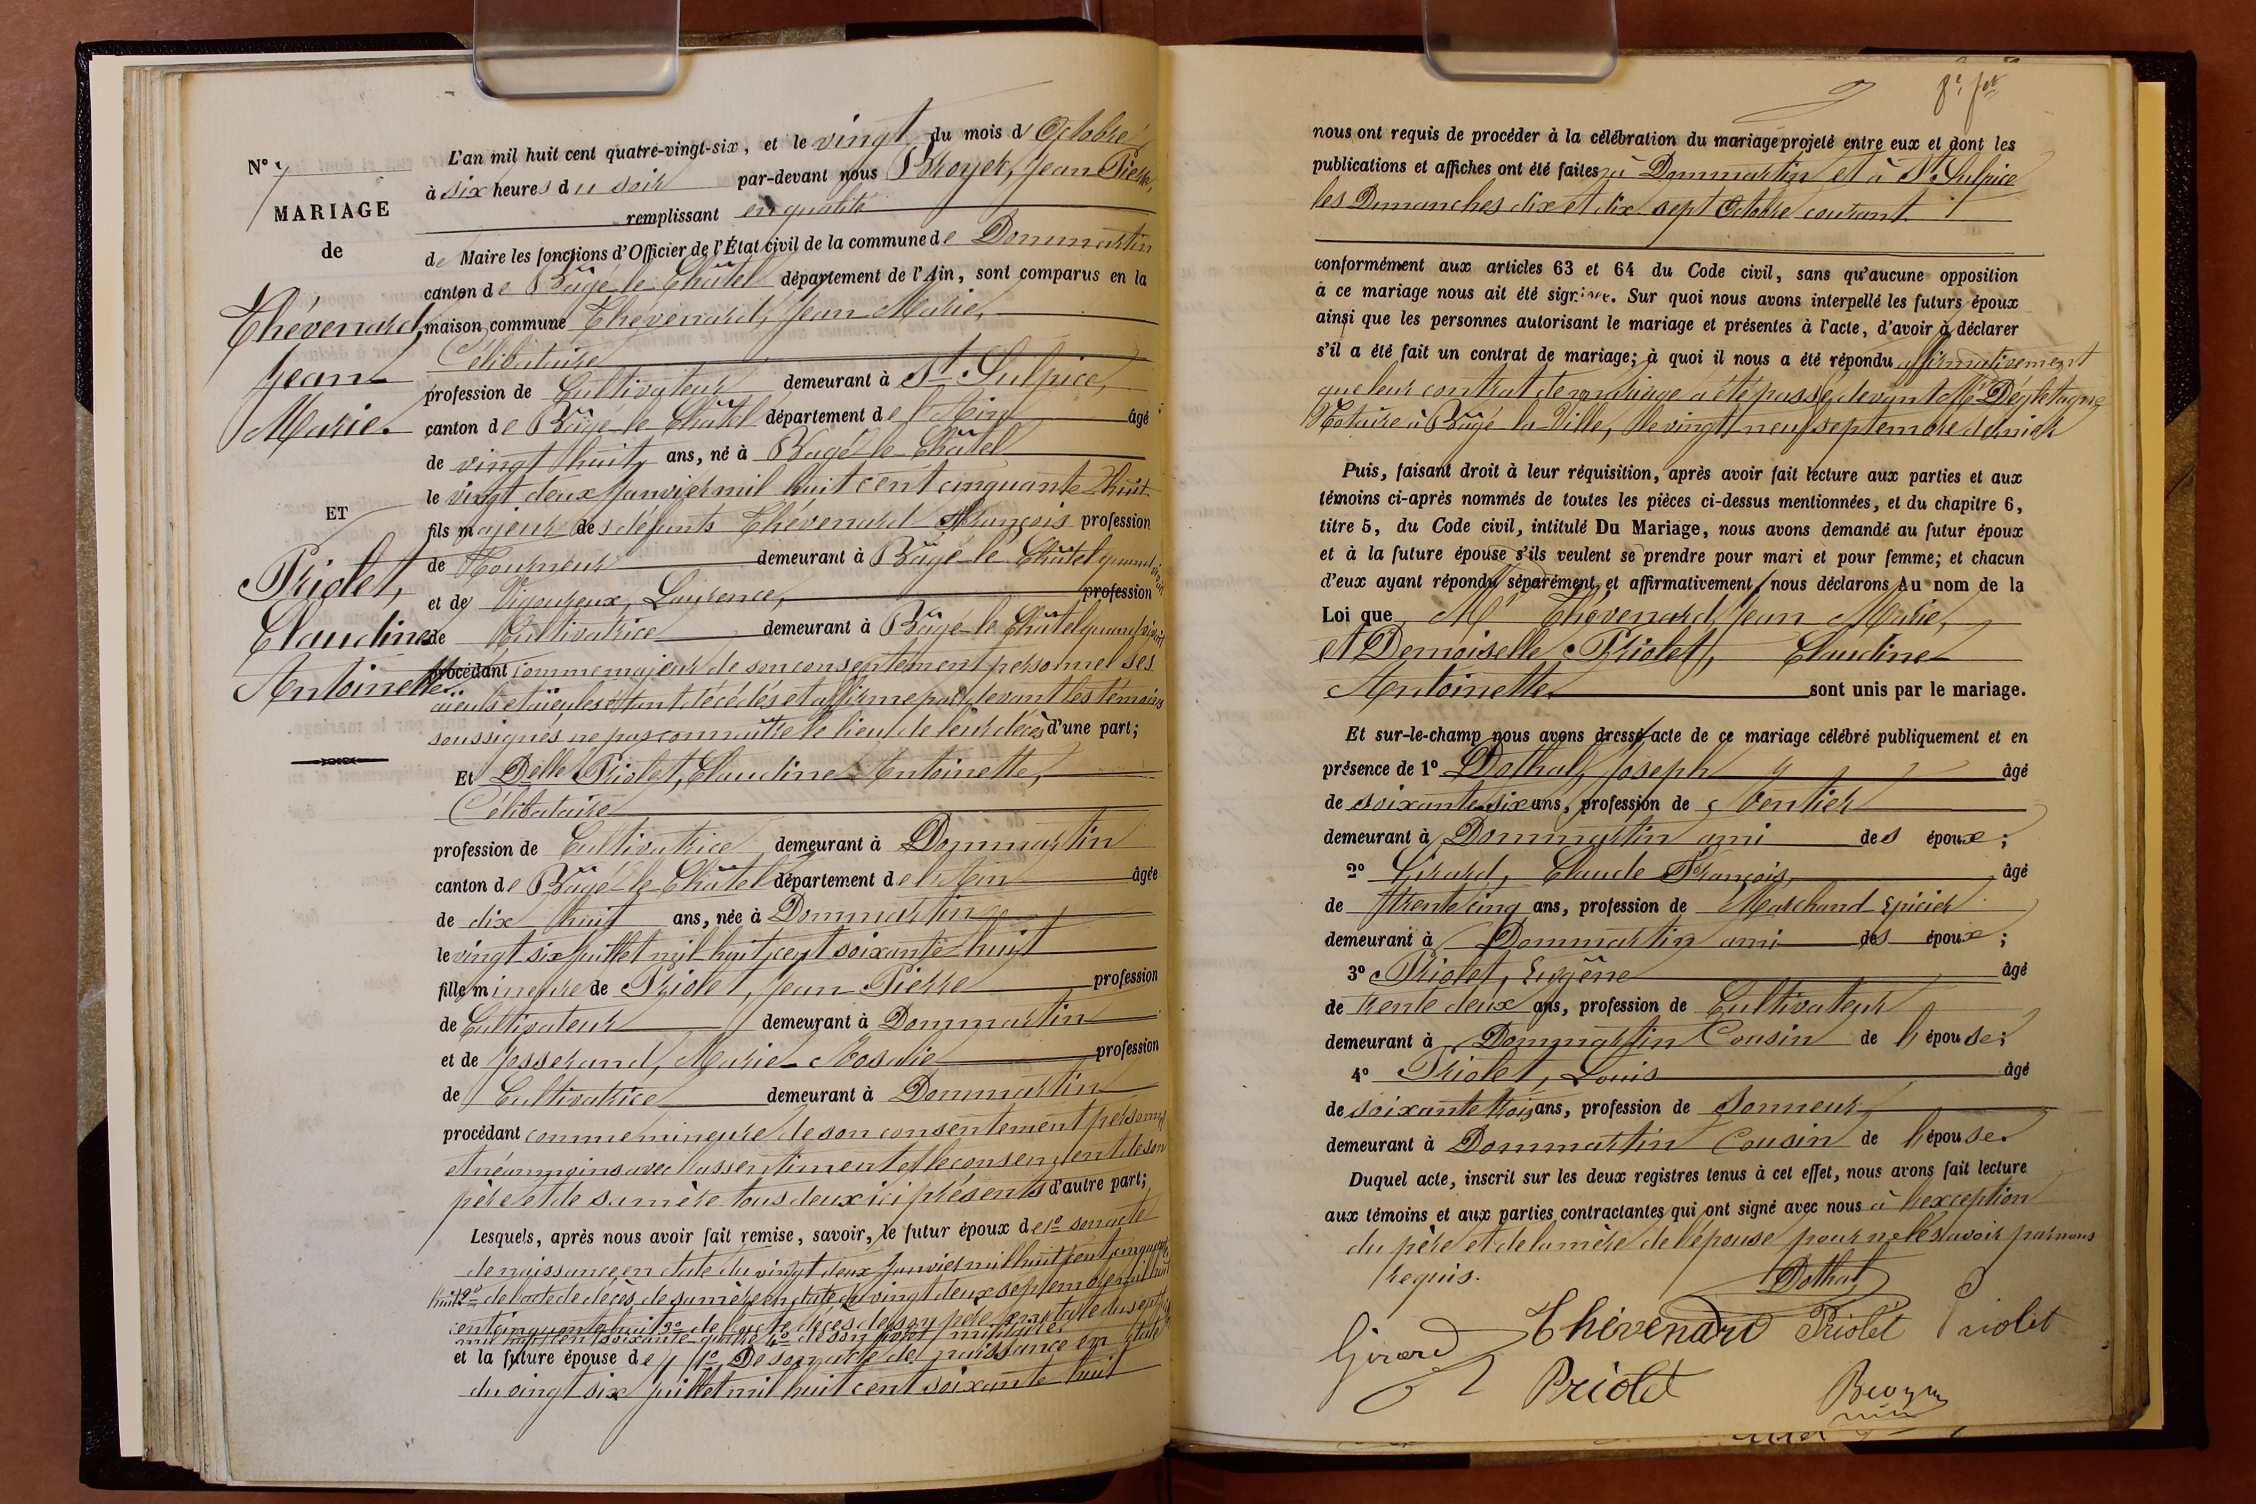 N° 7
MARIAGE
de
Thévenard,
Jean
Marie.
ET
Priolet,
Claudine
Antoinette
L'an mil huit cent quatre-vingt-six, et le vingt du mois d'Octobre
à six heures du soir par-devant nous Broyer, Jean Pierre,
remplissant en qualité
de Maire les fonctions d'Officier de l'État civil de la commune de Dommartin
canton de Bâgé-le-Châtel département de l'Ain, sont comparus en la
maison commune Thévenard, Jean Marie,
Célibataire
profession de Cultivateur demeurant à St. Sulpice,
canton de Bâgé-le-Châtel département de l'Ain âgé
de vingt huit ans, né à Bagé-le-Châtel
le vingt deux Janvier mil huit cent cinquante-huit
fils majeur des défunts Thévenard François profession
de Tourneur demeurant à Bâgé-le-Châtel quand vivait
et de Vigoureux, Laurence, profession
de Cultivatrice demeurant à Bâgé-le-Châtel quand vivait
procédant comme majeur de son consentement personnel ses
aïeuls et aïeules étant décédés et affirme par devant les témoins
soussignés ne pas connaître le lieu de leur décès d'une part;
Et Delle Priolet, Claudine Antoinette,
Célibataire
profession de Cultivatrice demeurant à Dommartin
canton de Bâgé-le-Châtel département de l'Ain âgée
de dix huit ans, née à Dommartin
le vingt six Juillet mil huit cent soixante-huit
fille mineure de Priolet, Jean Pierre profession
de Cultivateur demeurant à Dommartin
et de Josserand, Marie-Rosalie profession
de Cultivatrice demeurant à Dommartin
procédant comme mineure de son consentement personnel
et néanmoins avec l'assentiment et le consentent de son
père et de sa mère tous deux ici présents d'autre part;
Lesquels, après nous avoir fait remise, savoir, le futur époux de 1° son acte
de naissance en date du vingt deux Janvier mil huit cent cinquante
huit 2° de l'acte de décès de sa mère en date du vingt deux septembre mil huit
cent cinquante huit 3° de l'acte décès de son père en date du sept
mil huit cent soixante-quatre 4° de son livret militaire
et la future épouse de 1° De son acte de naissance en date
du vingt six Juillet mil huit cent soixante huit
nous ont requis de procéder à la célébration du mariage projeté entre eux et dont les
publications et affiches ont été faites à Dommartin et à St. Sulpice
les Dimanches dix et dix-sept Octobre courant
conformément aux articles 63 et 64 du Code civil, sans qu'aucune opposition
à ce mariage nous ait été signifiée. Sur quoi nous avons interpellé les futurs époux
ainsi que les personnes autorisant le mariage et présentes à l'acte, d'avoir à déclarer
s'il a été fait un contrat de mariage; à quoi il nous a été répondu affirmativement
que leur contrat de mariage a été passé devant Me
Notaire à Bâgé-la-Ville, le vingt neuf septembre dernier
Puis, faisant droit à leur réquisition, après avoir fait lecture aux parties et aux
témoins ci-après nommés de toutes les pièces ci-dessus mentionnées, et du chapitre 6,
titre 5, du Code civil, intitulé Du Mariage, nous avons demandé au futur époux
et à la future épouse s'ils veulent se prendre pour mari et pour femme; et chacun
d'eux ayant répondu séparément et affirmativement, nous déclarons Au nom de la
Loi que Mr Thevenard, Jean Marie,
et Demoiselle Priolet, Claudine
Antoinette sont unis par le mariage.
Et sur-le-champ nous avons dressé acte de ce mariage célébré publiquement et en
présence de 1° Dothal, Joseph âgé
de soixante-six ans, profession de Rentier
demeurant à Dommartin ami des époux;
2° Girard, Claude François, âgé
de trente cinq ans, profession de Marchand Epicier
demeurant à Dommartin ami des époux;
3° Priolet, Eugène âgé
de trente deux ans, profession de Cultivateur
demeurant à Dommartin Cousin de l'épouse;
4° Priolet, Louis âgé
de soixante trois ans, profession de Sonneur
demeurant à Dommartin Cousin de l'épouse.
Duquel acte, inscrit sur les deux registres tenus à cet effet, nous avons fait lecture
aux témoins et aux parties contractantes qui ont signé avec nous à l'exception
du père et de la mère de l'épouse pour ne le savoir par nous
requis.
Dothal
Girard Thévenard Priolet Priolet
Priolet Broyer